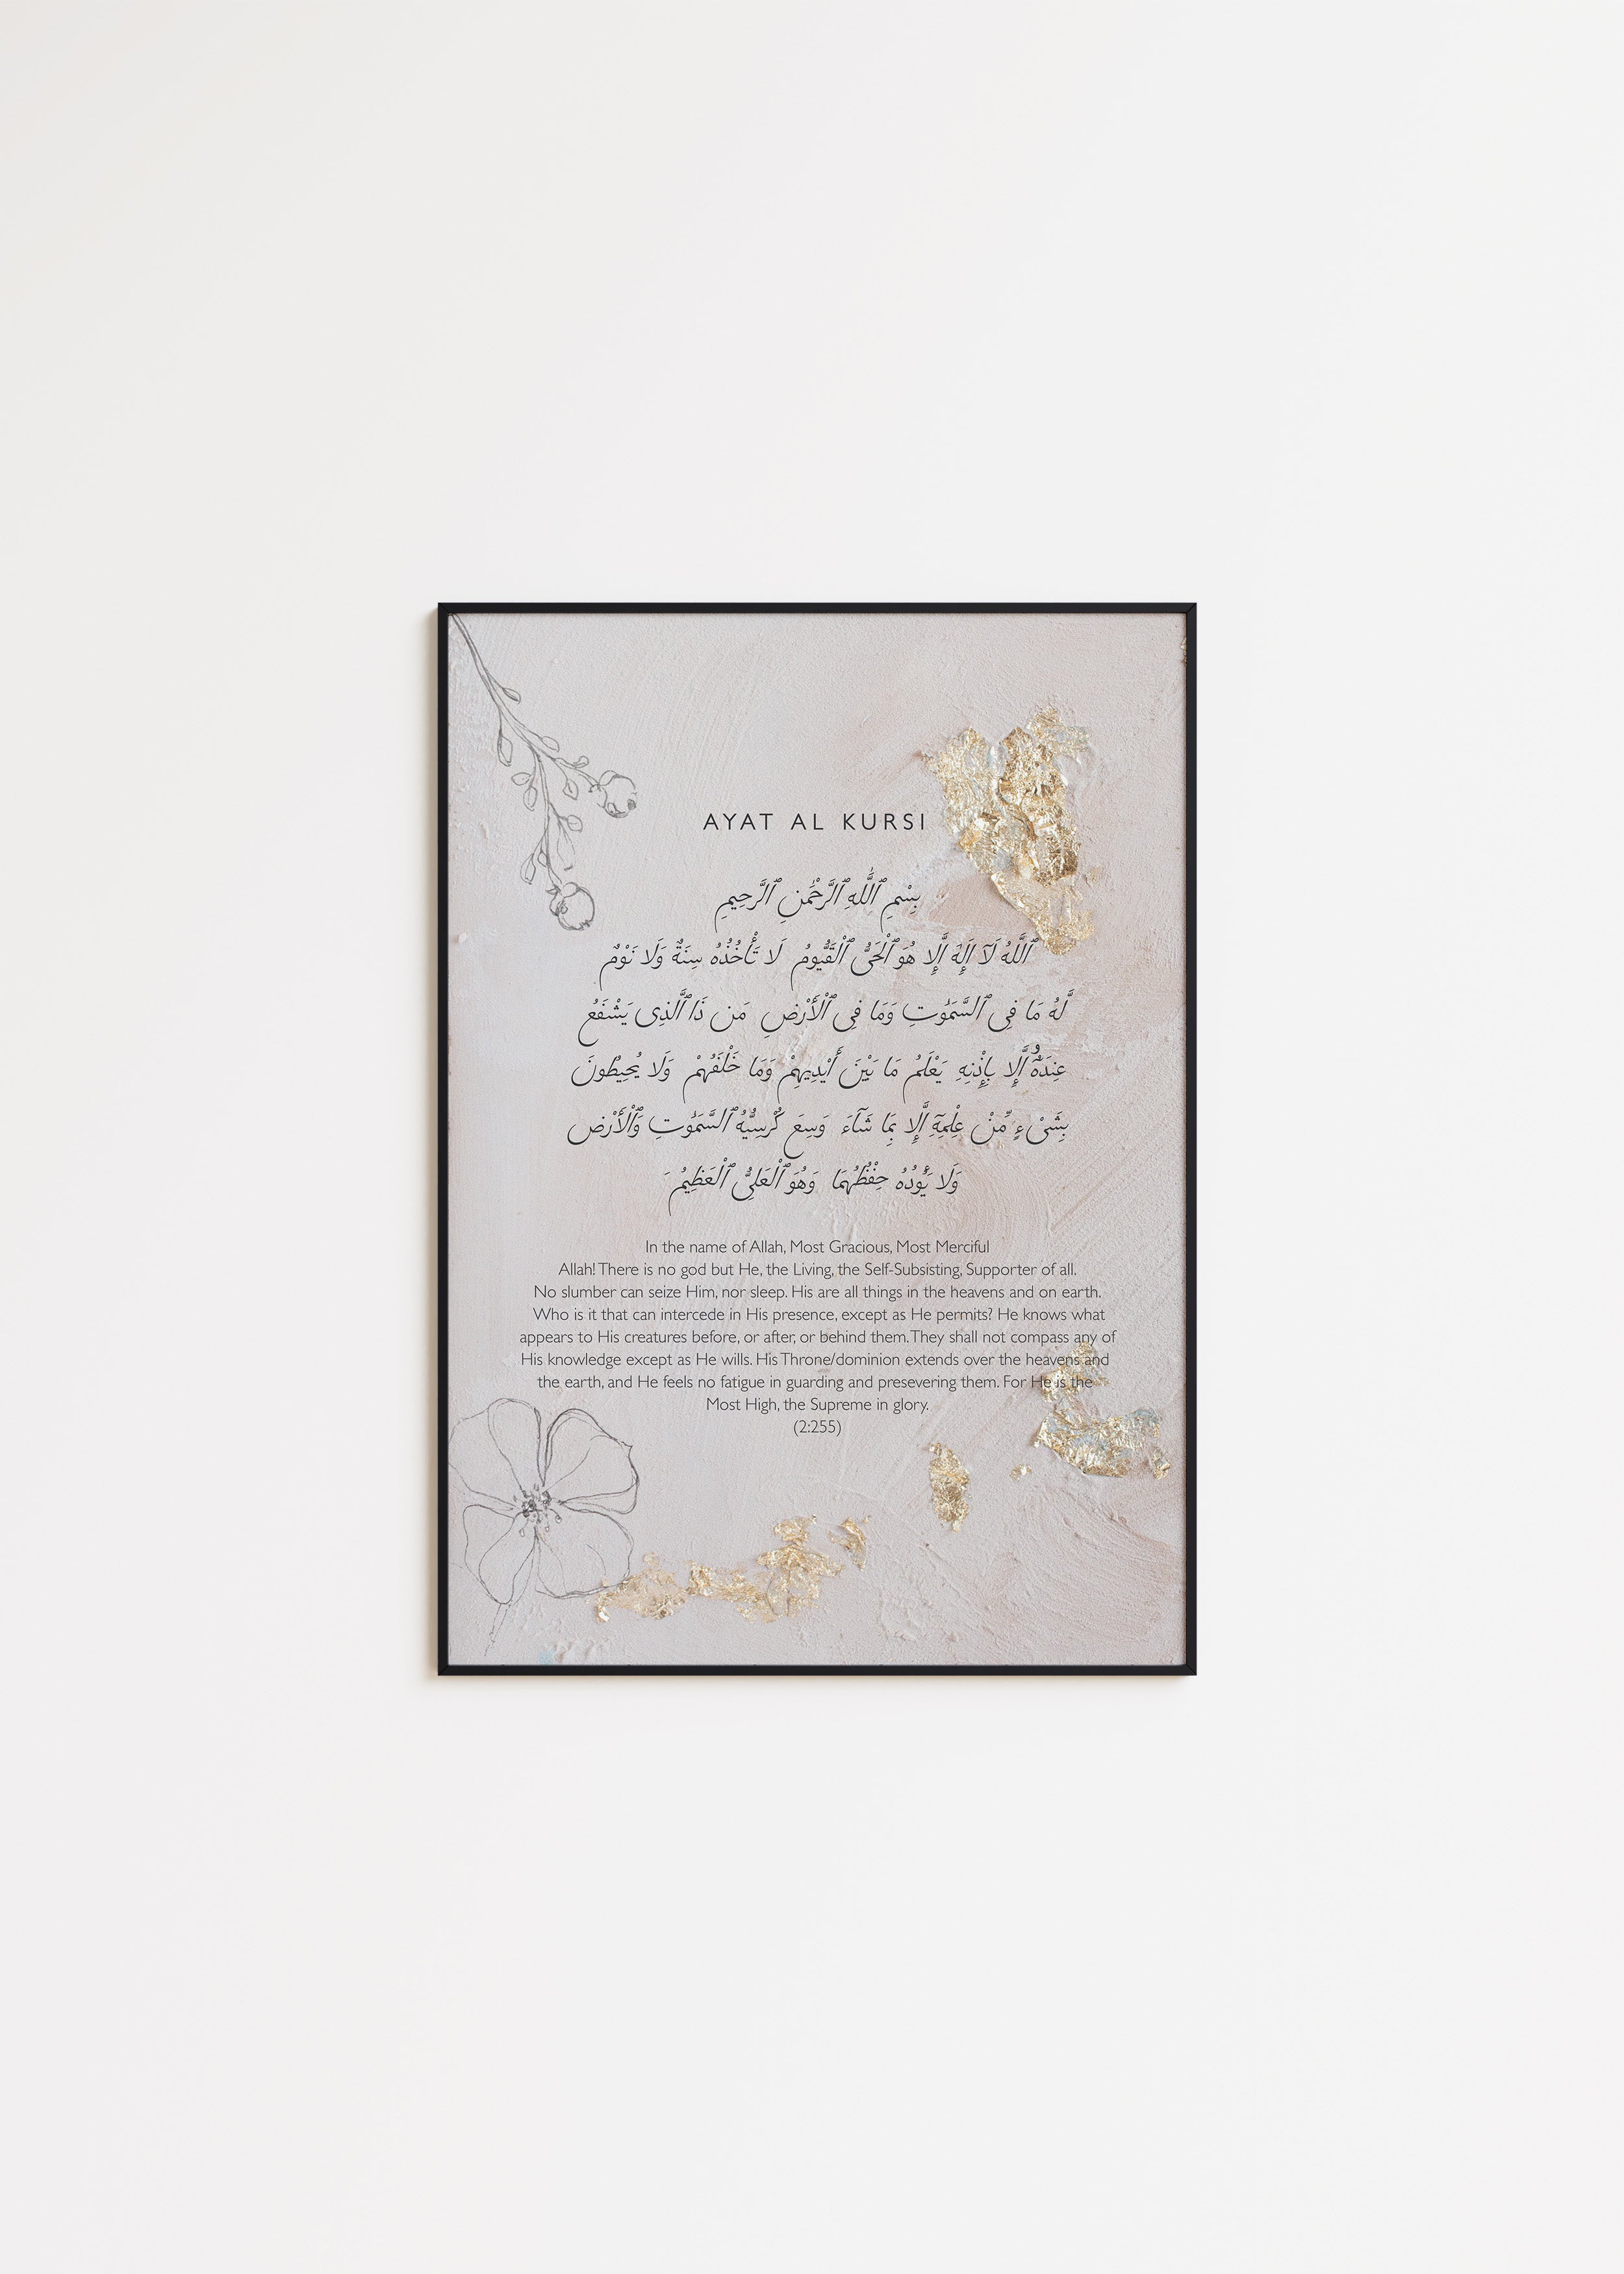 AYAT AL KURSI
بِسْمِ ٱللَّهِ ٱلرَّحْمَٰنِ ٱلرَّحِيمِ
ٱللَّهُ لَآ إِلَٰهَ إِلَّا هُوَ ٱلْحَىُّ ٱلْقَيُّومُ لَا تَأْخُذُهُۥ سِنَةٌ وَلَا نَوْمٌ
لَّهُۥ مَا فِى ٱلسَّمَٰوَٰتِ وَمَا فِى ٱلْأَرْضِ مَن ذَا ٱلَّذِى يَشْفَعُ
عِندَهُۥٓ إِلَّا بِإِذْنِهِۦ يَعْلَمُ مَا بَيْنَ أَيْدِيهِمْ وَمَا خَلْفَهُمْ وَلَا يُحِيطُونَ
بِشَىْءٍ مِّنْ عِلْمِهِۦٓ إِلَّا بِمَا شَآءَ وَسِعَ كُرْسِيُّهُ ٱلسَّمَٰوَٰتِ وَٱلْأَرْضَ
وَلَا يَـُٔودُهُۥ حِفْظُهُمَا وَهُوَ ٱلْعَلِىُّ ٱلْعَظِيمُ
In the name of Allah, Most Gracious, Most Merciful
Allah! There is no god but He, the Living, the Self-Subsisting, Supporter of all.
No slumber can seize Him, nor sleep. His are all things in the heavens and on earth.
Who is it that can intercede in His presence, except as He permits? He knows what
appears to His creatures before, or after, or behind them. They shall not compass any of
His knowledge except as He wills. His Throne/dominion extends over the heavens and
the earth, and He feels no fatigue in guarding and presevering them. For He is the
Most High, the Supreme in glory.
(2:255)